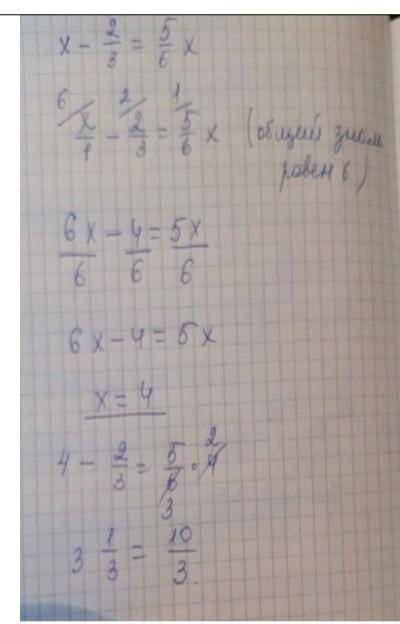 x - 2/3 = 5/6 x
6/ x/1 - 2/ 2/3 = 1/ 5/6 x (общий знам
равен 6)
6x/6 - 4/6 = 5x/6
6x - 4 = 5x
x = 4
4 - 2/3 = 5/6 3 · 4 2
3 1/3 = 10/3.